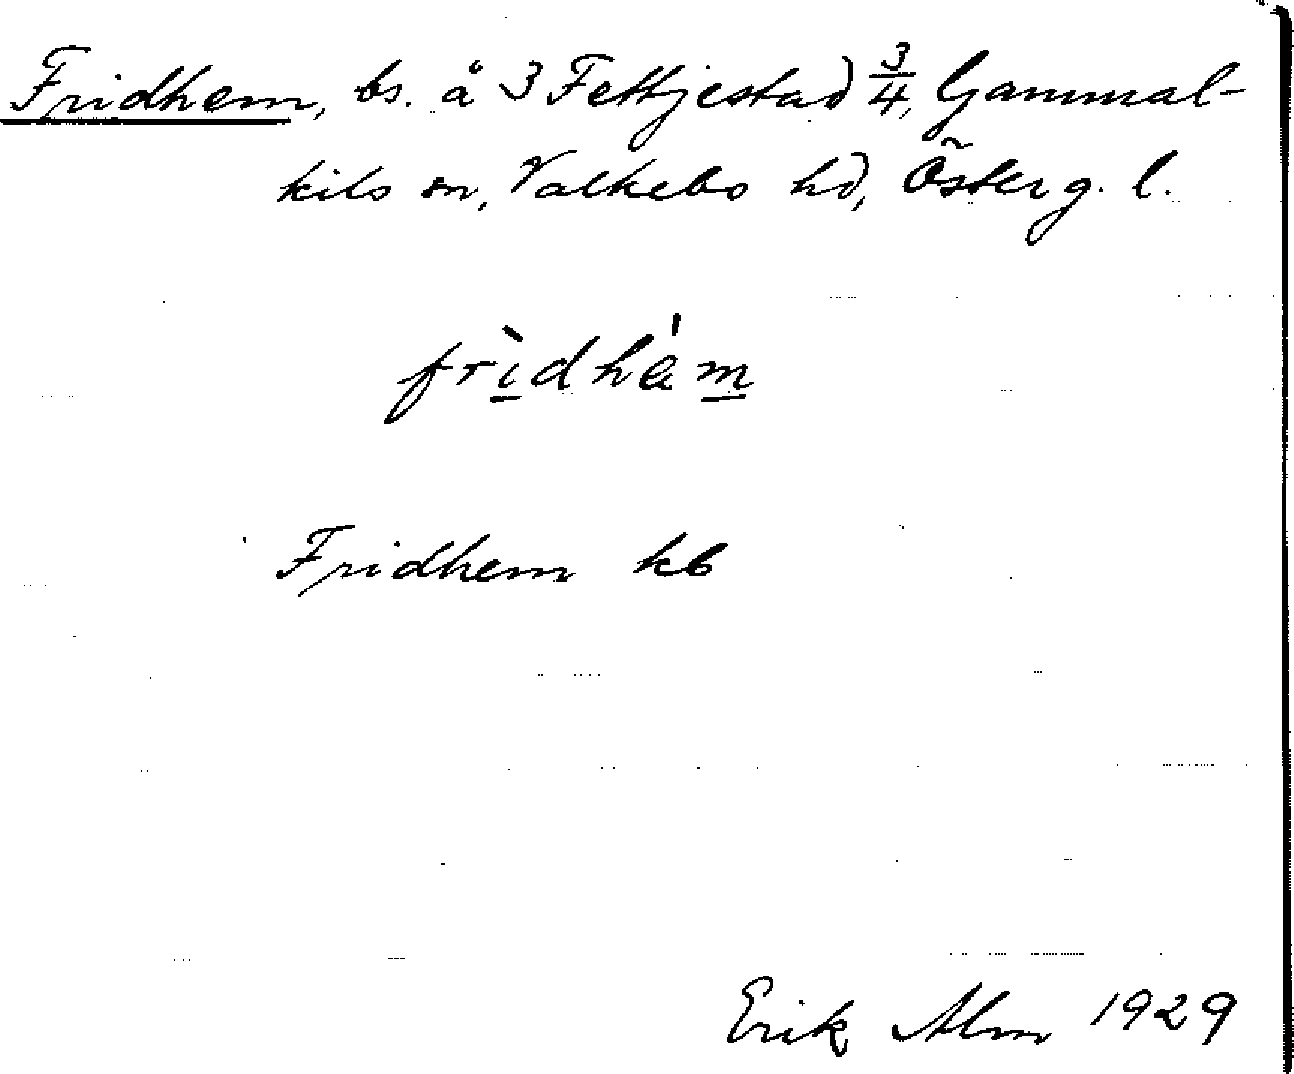 Fridhem, bs. å 3 Fettjestad 3/4, Gammal-
kils sn, Valkebo hd, Österg. l.
frìdhám
Fridhem kb
Erik Alm 1929